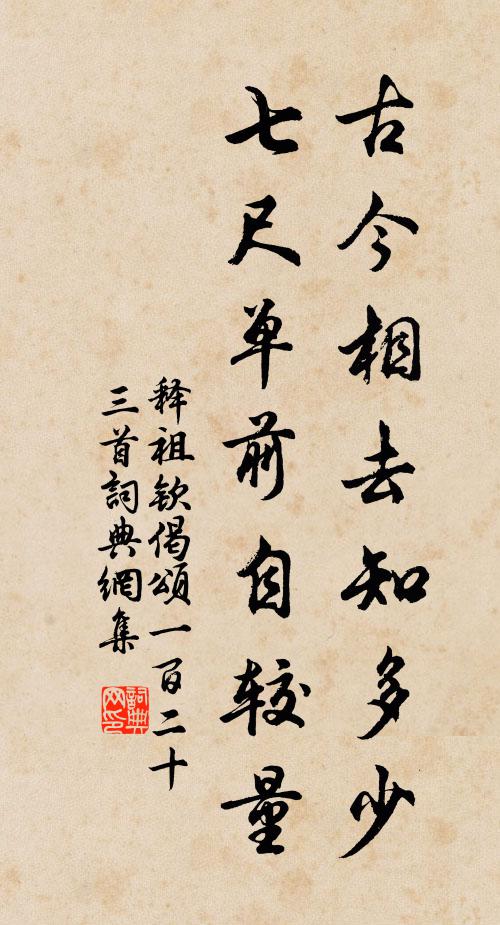 古今相去知多少
七尺单前自较量
释祖钦偈頌一百二十
三首詞典網集
詞典
网印